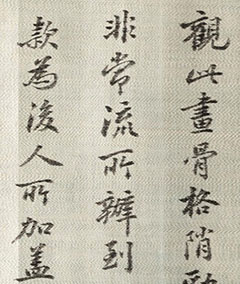 觀此畫骨格陗勁
非常流所辦到
款為後人所加蓋